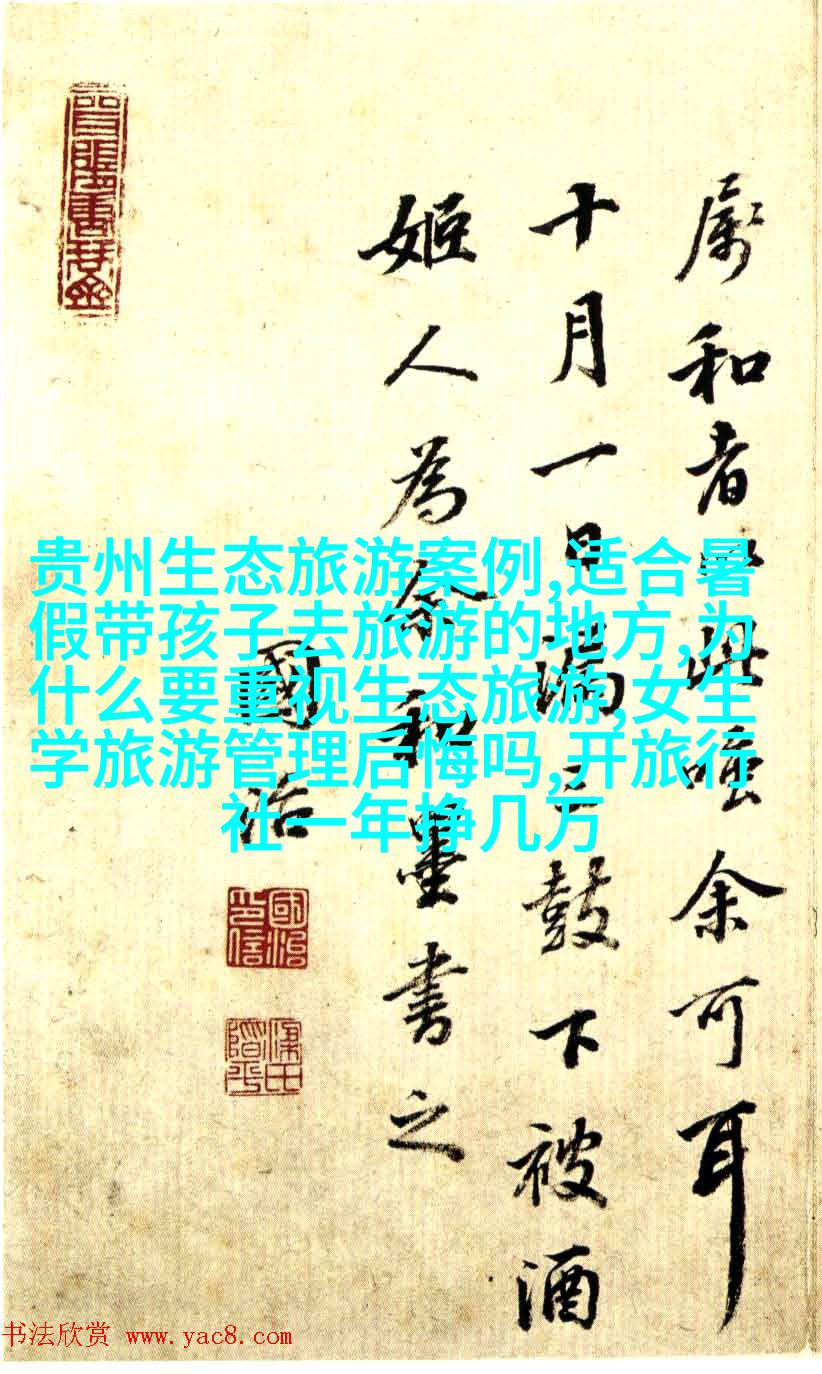 屬和者此嗤余可耳
十月一日漏三鼓下被酒
姬人為余和墨書之
國治
贵州生态旅游案例,适合暑
假带孩子去旅游的地方,为
什么要重视生态旅游,女生
学旅游管理后悔吗,开旅行
社一年挣几万
國治印信
书法欣赏 www.yac8.com